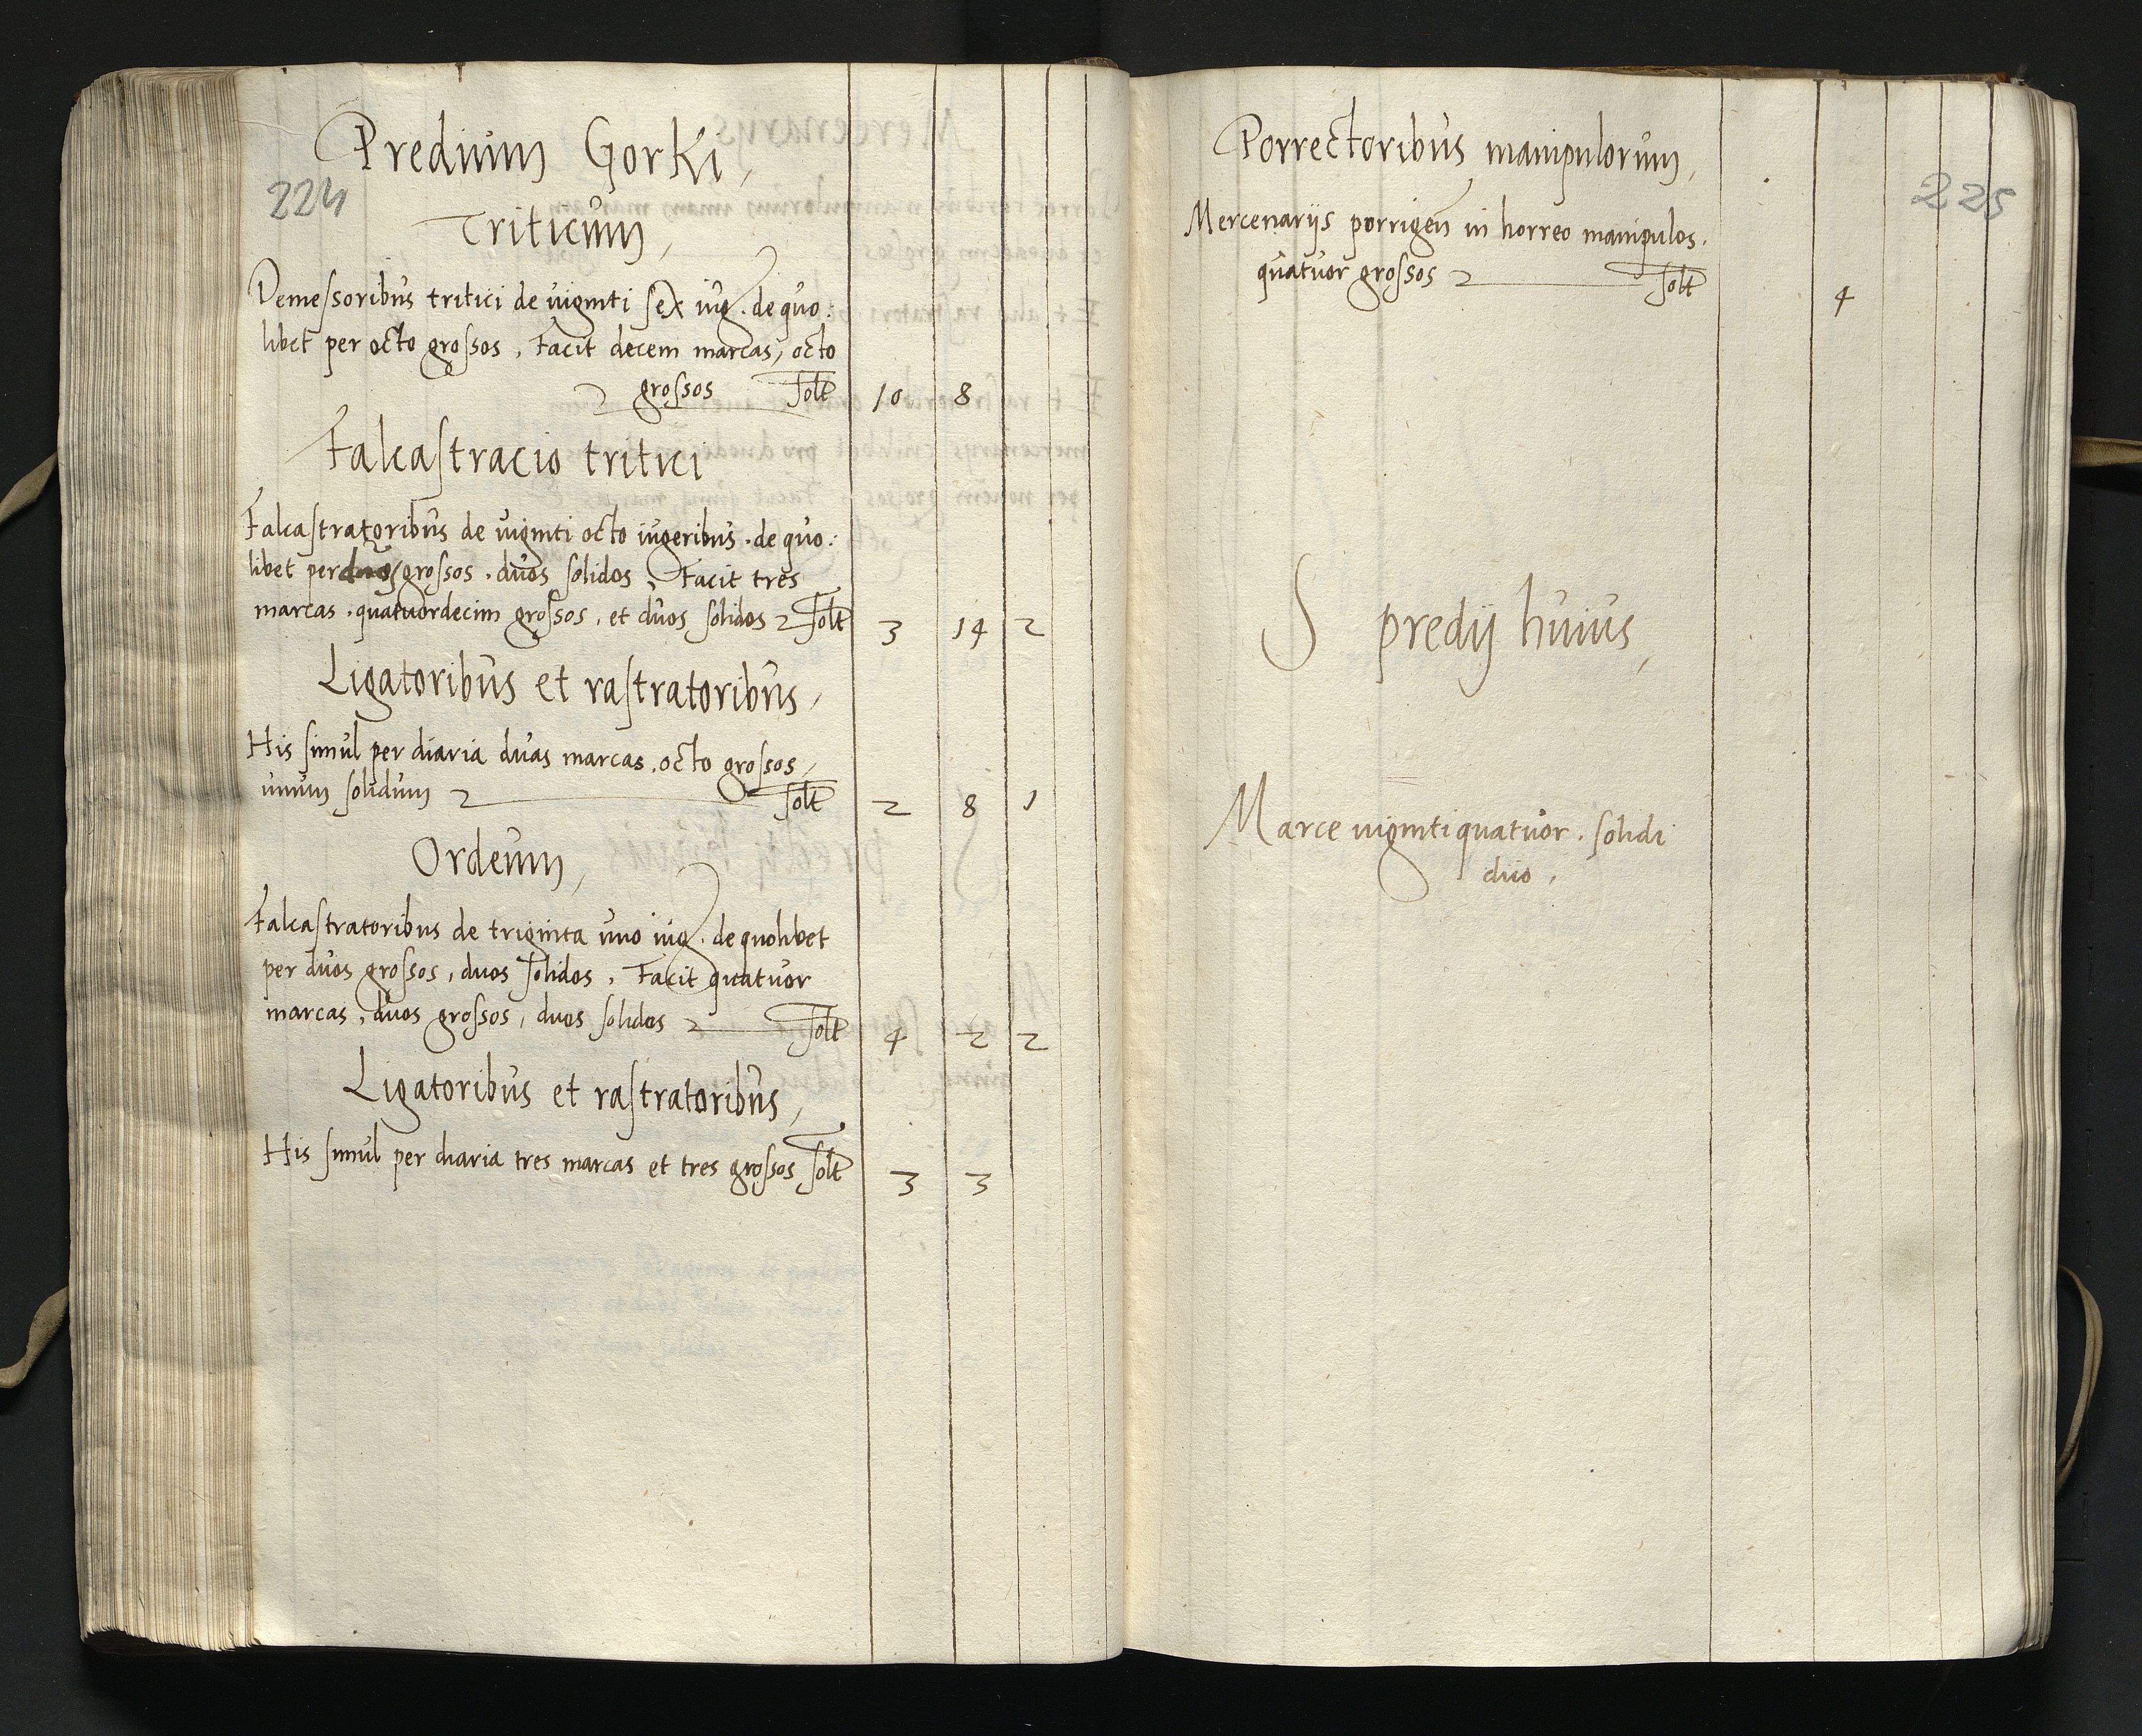 Predium Gorki,
224
Triticum,
Demessoribus tritici de viginti sex iug. de quo:
libet per octo grossos, Facit decem marcas, octo
grossos Solt 10 8
Falcastracio tritici
Falcastratoribus de viginti octo iugeribus. de quo:
libet per duos grossos. duos solidos, Facit tres
marcas. quatuordecim grossos, et duos solidos Solt 3 14 2
Ligatoribus et rastratoribus,
His simul per diaria duas marcas. octo grossos,
unum solidum Solt 2 8 1
Ordeum,
Falcastratoribus de triginta uno iug. de quolibet
per duos grossos, duos solidos, Facit quatuor
marcas, duos grossos, duos solidos Solt 4 2 2
Ligatoribus et rastratoribus,
His simul per diaria tres marcas et tres grossos Solt 3 3
Porrectoribus manipulorum,
225
Mercenarijs porrigen in horreo manipulos.
quatuor grossos Solt 4
S predij huius,
Marce viginti quatuor. solidi
duo.